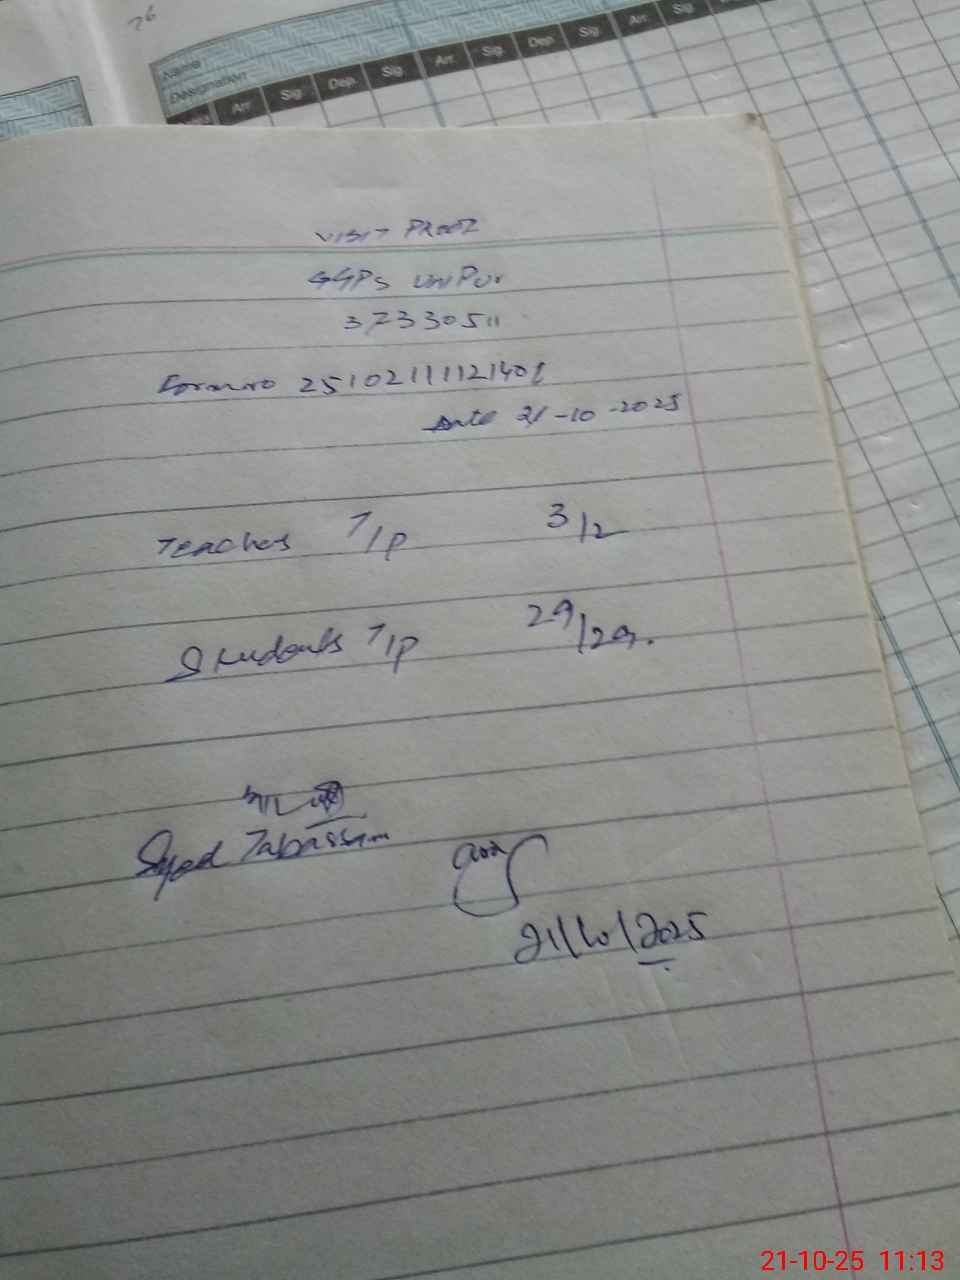 76
Name
Designation
Arr. Sig. Dep. Sig. Arr. Sig. Dep. Sig. Arr. Sig.
VISIT PROOF
GGPS UniPur
37330511
Form no 25102111121401
Date 21-10-2025
Teaches T/p 3/2
Students T/p 29/29.
Syed Tabassam
21/10/2025
21-10-25 11:13